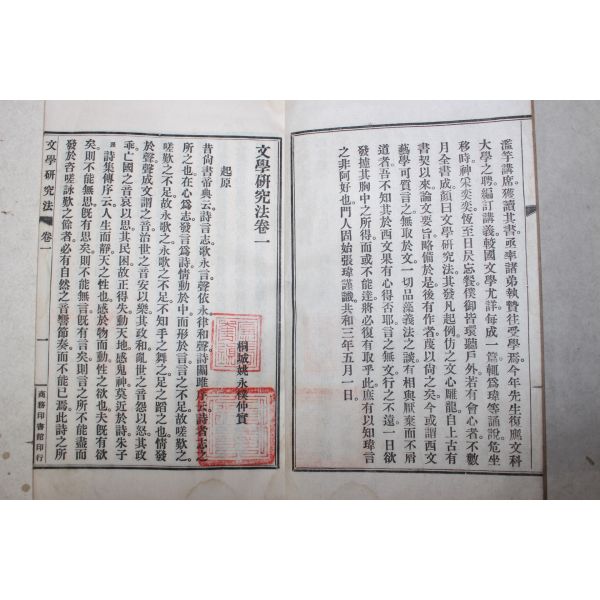 濫竽講席獲讀其書亟率諸弟執贄往受學焉今年先生復應文科
大學之聘編訂講義較國文學尤詳每成一篇輒爲瑋等誦說危坐
移時神采奕奕恆至日昃忘餐僕御皆環聽戶外若有會心者不數
月全書成顏曰文學研究法其發凡起例仿之文心雕龍自上古有
書契以來論文要旨略備於是後有作者蔑以尙之矣今或謂西文
藝學可質言之無取於文一切品藻義法之談有相與厭棄而不屑
道者吾不知其於西文果有心得否耶言之無文行之不遠一日欲
發攄其胸中之所得而或不能達將必復有取乎此庶有以知瑋言
之非阿好也門人固始張瑋謹識共和三年五月一日
文學研究法卷一
桐城姚永樸仲實
起原
昔尙書帝典云詩言志歌永言聲依永律和聲詩關雎序云詩者志之
所之也在心爲志發言爲詩情動於中而形於言言之不足故嗟歎之
嗟歎之不足故永歌之永歌之不足不知手之舞之足之蹈之也情發
於聲聲成文謂之音治世之音安以樂其政和亂世之音怨以怒其政
乖亡國之音哀以思其民困故正得失動天地感鬼神莫近於詩朱子
詩集傳序云人生而靜天之性也感於物而動性之欲也夫旣有欲
矣則不能無思旣有思矣則不能無言旣有言矣則言之所不能盡而
發於咨嗟詠歎之餘者必有自然之音響節奏而不能已焉此詩之所
文學研究法
卷一
一
商務印書館印行